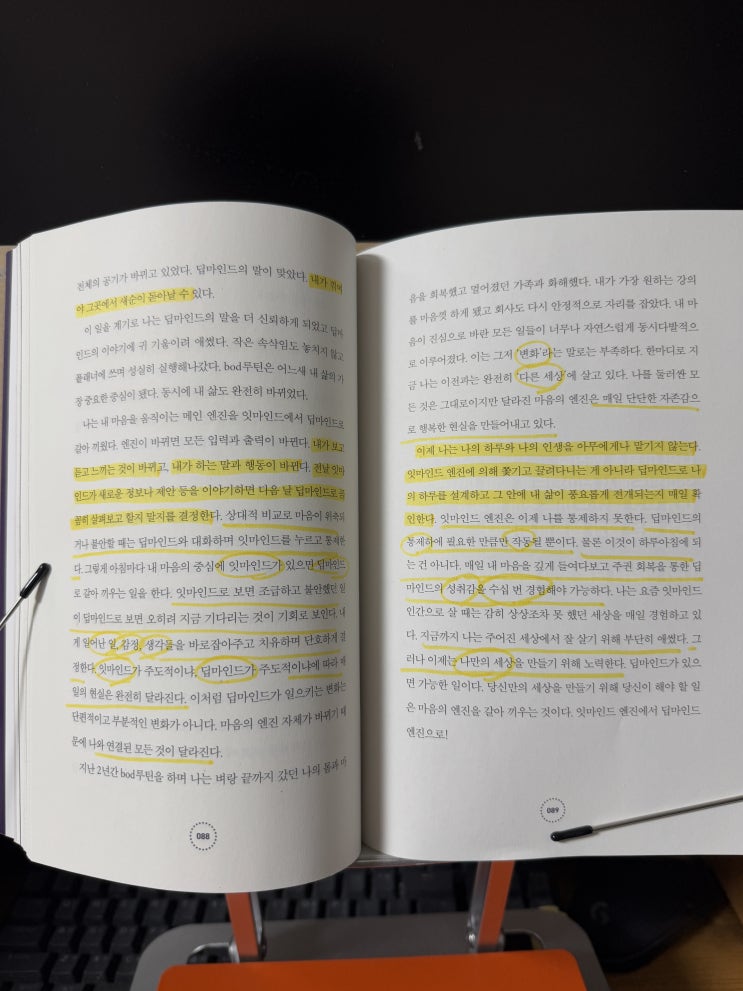 전체의 공기가 바뀌고 있었다. 딥마인드의 말이 맞았다. 내가 꺾여
야 그곳에서 새순이 돋아날 수 있다.
이 일을 계기로 나는 딥마인드의 말을 더 신뢰하게 되었고 딥마
인드의 이야기에 귀 기울이려 애썼다. 작은 속삭임도 놓치지 않고
플래너에 쓰며 성실히 실행해나갔다. bod루틴은 어느새 내 삶의 가
장 중요한 중심이 됐다. 동시에 내 삶도 완전히 바뀌었다.
나는 내 마음을 움직이는 메인 엔진을 잇마인드에서 딥마인드로
갈아 끼웠다. 엔진이 바뀌면 모든 입력과 출력이 바뀐다. 내가 보고
듣고 느끼는 것이 바뀌고, 내가 하는 말과 행동이 바뀐다. 전날 잇마
인드가 새로운 정보나 제안 등을 이야기하면 다음 날 딥마인드로 꼼
꼼히 살펴보고 할지 말지를 결정한다. 상대적 비교로 마음이 위축되
거나 불안할 때는 딥마인드와 대화하며 잇마인드를 누르고 통제한
다. 그렇게 아침마다 내 마음의 중심에 잇마인드가 있으면 딥마인드
로 갈아 끼우는 일을 한다. 잇마인드로 보면 조급하고 불안했던 일
이 딥마인드로 보면 오히려 지금 기다리는 것이 기회로 보인다. 내
게 일어난 일, 감정, 생각들을 바로잡아주고 치유하며 단호하게 결
정한다. 잇마인드가 주도적이냐, 딥마인드가 주도적이냐에 따라 매
일의 현실은 완전히 달라진다. 이처럼 딥마인드가 일으키는 변화는
단편적이고 부분적인 변화가 아니다. 마음의 엔진 자체가 바뀌기 때
문에 나와 연결된 모든 것이 달라진다.
지난 2년간 bod루틴을 하며 나는 벼랑 끝까지 갔던 나의 몸과 마
088
음을 회복했고 멀어졌던 가족과 화해했다. 내가 가장 원하는 강의
를 마음껏 하게 됐고 회사도 다시 안정적으로 자리를 잡았다. 내 마
음이 진심으로 바란 모든 일들이 너무나 자연스럽게 동시다발적으
로 이루어졌다. 이는 그저 '변화'라는 말로는 부족하다. 한마디로 지
금 나는 이전과는 완전히 '다른 세상'에 살고 있다. 나를 둘러싼 모
든 것은 그대로이지만 달라진 마음의 엔진은 매일 단단한 자존감으
로 행복한 현실을 만들어내고 있다.
이제 나는 나의 하루와 나의 인생을 아무에게나 맡기지 않는다.
잇마인드 엔진에 의해 쫓기고 끌려다니는 게 아니라 딥마인드로 나
의 하루를 설계하고 그 안에 내 삶이 풍요롭게 전개되는지 매일 확
인한다. 잇마인드 엔진은 이제 나를 통제하지 못한다. 딥마인드의
통제하에 필요한 만큼만 작동될 뿐이다. 물론 이것이 하루아침에 되
는 건 아니다. 매일 내 마음을 깊게 들여다보고 주권 회복을 통한 딥
마인드의 성취감을 수십 번 경험해야 가능하다. 나는 요즘 잇마인드
인간으로 살 때는 감히 상상조차 못 했던 세상을 매일 경험하고 있
다. 지금까지 나는 주어진 세상에서 잘 살기 위해 부단히 애썼다. 그
러나 이제는 나만의 세상을 만들기 위해 노력한다. 딥마인드가 있으
면 가능한 일이다. 당신만의 세상을 만들기 위해 당신이 해야 할 일
은 마음의 엔진을 갈아 끼우는 것이다. 잇마인드 엔진에서 딥마인드
엔진으로!
089